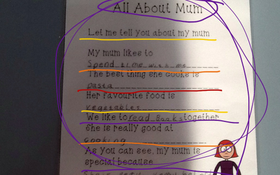 All About Mum
Let me tell you about my mum
My mum likes to
Spend time with me
The best thing she cooks is
pasta
Her favourite food is
vegetables
We like to read books together
she is really good at
cooking
As you can see, my mum is
special because